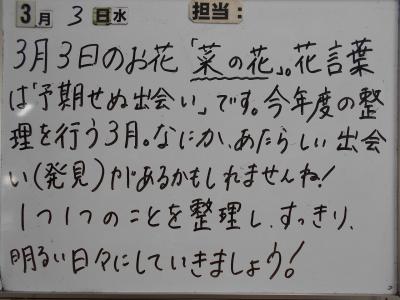 3月 3 日水 担当:
3月3日のお花「菜の花」。花言葉
は「予期せぬ出会い」です。今年度の整
理を行う3月。なにか、あたらしい出会
い(発見)があるかもしれませんね!
1つ1つのことを整理し、すっきり、
明るい日々にしていきましょう!